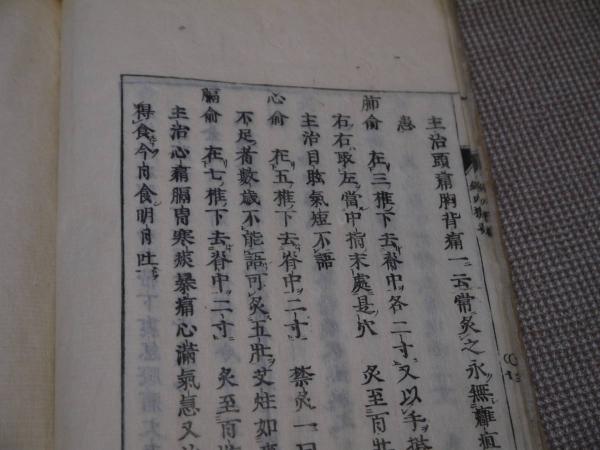 主治頭痛胸背痛一云常灸之永無癰疽
患
肺俞　在三椎下去脊中各二寸又以手搭
右右取左當中指末處是穴　灸至百壯
主治目眩氣短不語
心俞　在五椎下去脊中二寸　禁灸一曰
不足者數歲不能語可灸五壯艾炷如麥
膈俞　在七椎下去脊中二寸　灸至百壯
主治心痛膈胃寒痰暴痛心滿氣急又
得食今日食明日吐